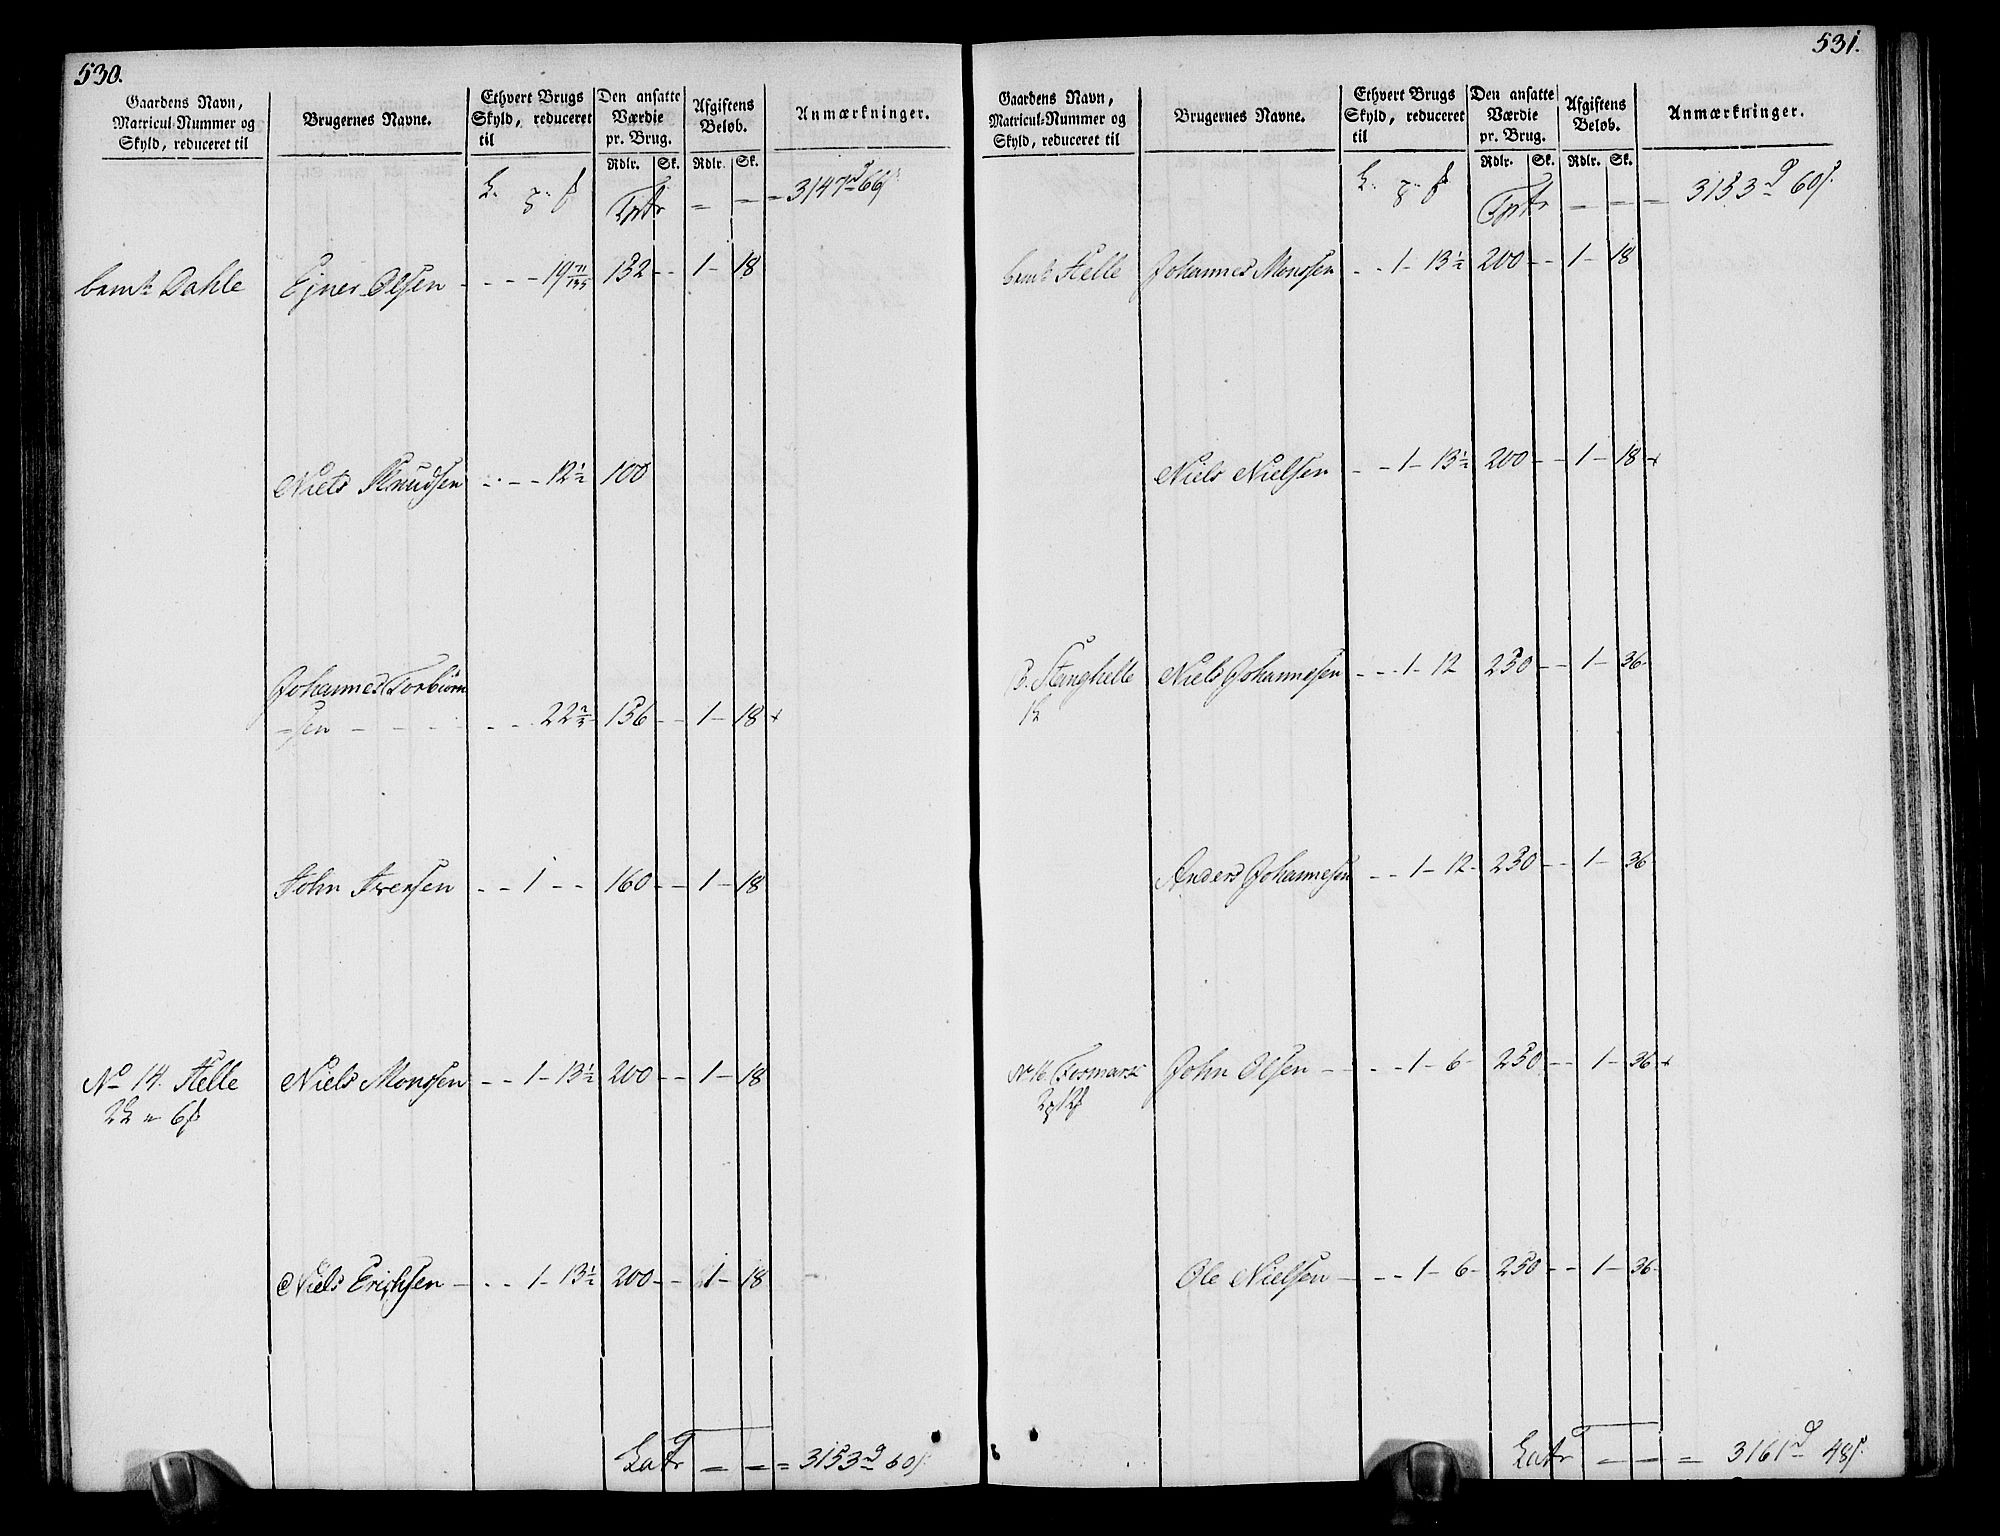 530.
Gaardens Navn, Matricul-Nummer og Skyld, reduceret til
Brugernes Navne.
Ethvert Brugs Skyld, reduceret til
Den ansatte Værdie pr. Brug.
Afgiftens Beløb.
Anmærkninger.
Rdlr. Sk. Rdlr. Sk.
Tptr = = = 3147 66
Dahle Ejner Olsen - - - 19 132 - - 1- 18
Niels Knudsen - - - 12½ 100
Johannes Torbiørn
-sen - - - - - - 22⅔ 156 - - 1- 18 +
John Iversen - - 1 - - 160 - - 1- 18
No 14. Helle Niels Monssen - - 1- 13½ 200 - - 1- 18
Niels Erichsen - - - 1- 13½ 200 - - 1- 18
Latr = = = 3153 60
531.
Gaardens Navn, Matricul-Nummer og Skyld, reduceret til
Brugernes Navne.
Ethvert Brugs Skyld, reduceret til
Den ansatte Værdie pr. Brug.
Afgiftens Beløb.
Anmærkninger.
Rdlr. Sk. Rdlr. Sk.
Tptr = = = 3153 60
Helle Johannes Monssen - - 1- 13½ 200 - - 1- 18
Niels Nielsen - - 1- 13½ 200 - - 1- 18 +
Stanghelle Niels Johannesen - - 1- 12 250 - - 1- 36
Anders Johannesen - - 1- 12- 250 - - 1- 36
John Olsen - - - 1- 6- 250 - - 1- 36 +
Ole Nielsen - - - 1- 6- 250 - - 1- 36
Latr - - = 3161 48